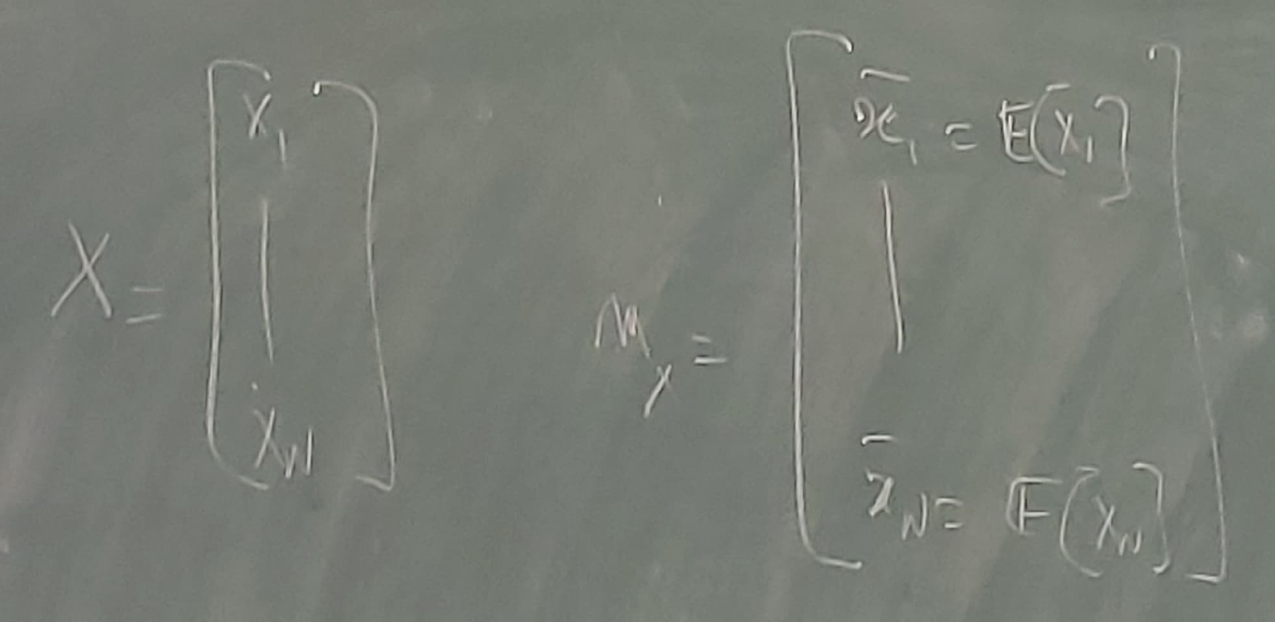 X = [ X₁ | X_N ]
m_X = [ x̄₁ = E[X₁] | x̄_N = E[X_N] ]